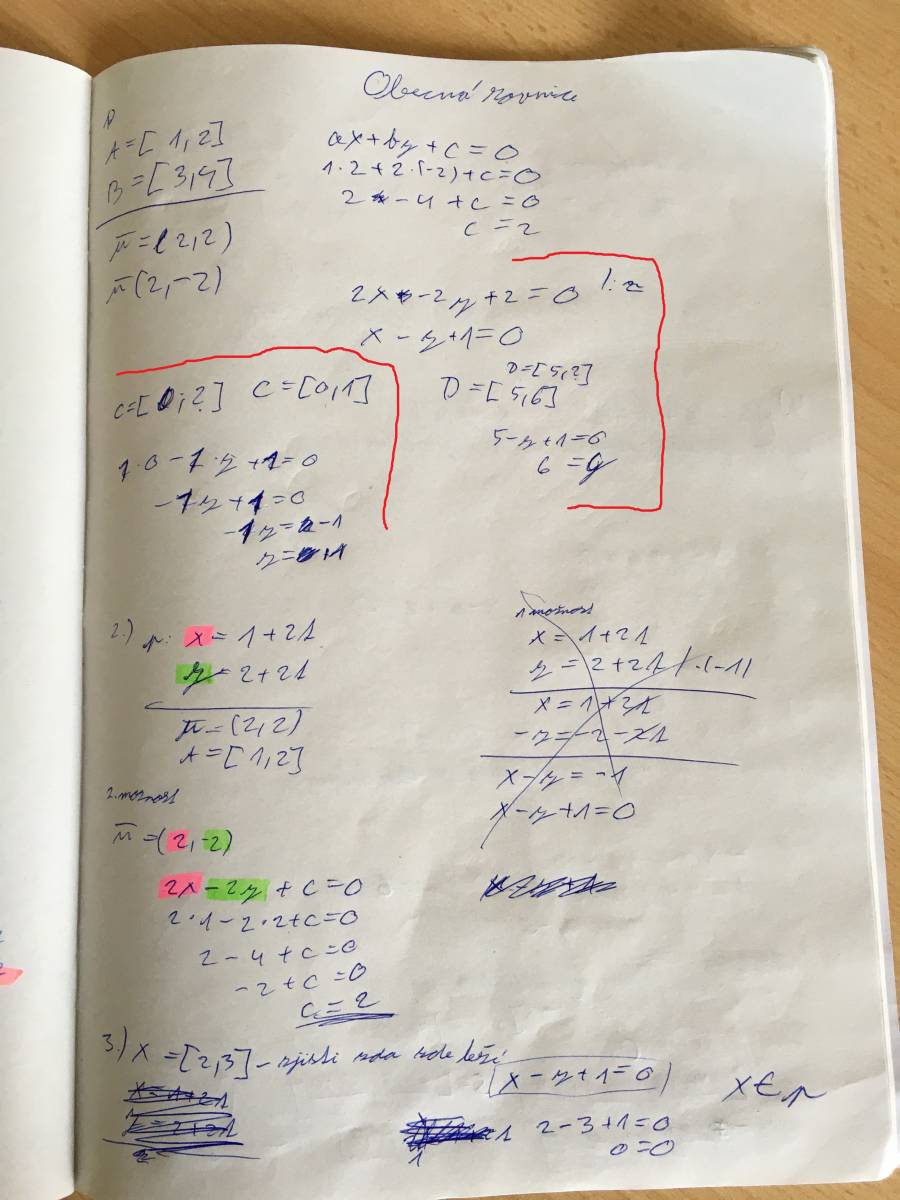 Obecná rovnice
1)
A = [1,2]
B = [3,4]
u = (2,2)
n (2,-2)
ax + by + c = 0
1·2 + 2·(-2) + c = 0
2 - 4 + c = 0
c = 2
2x - 2y + 2 = 0 /:2
x - y + 1 = 0
C = [0;?] C = [0,1]
1·0 - 1·y + 1 = 0
-1y + 1 = 0
-1y = -1
y = +1
D = [5,?]
D = [5,6]
5 - y + 1 = 0
6 = y
2.) p: x = 1 + 2t
y = 2 + 2t
u = (2,2)
A = [1,2]
1 možnost
x = 1 + 2t
y = 2 + 2t /·(-1)
x = 1 + 2t
-y = -2 - 2t
x - y = -1
x - y + 1 = 0
2. možnost
n = (2,-2)
2x - 2y + c = 0
2·1 - 2·2 + c = 0
2 - 4 + c = 0
-2 + c = 0
c = 2
3.) X = [2,3] - zjisti zda zde leží
x - y + 1 = 0
X ∈ p
2 - 3 + 1 = 0
0 = 0